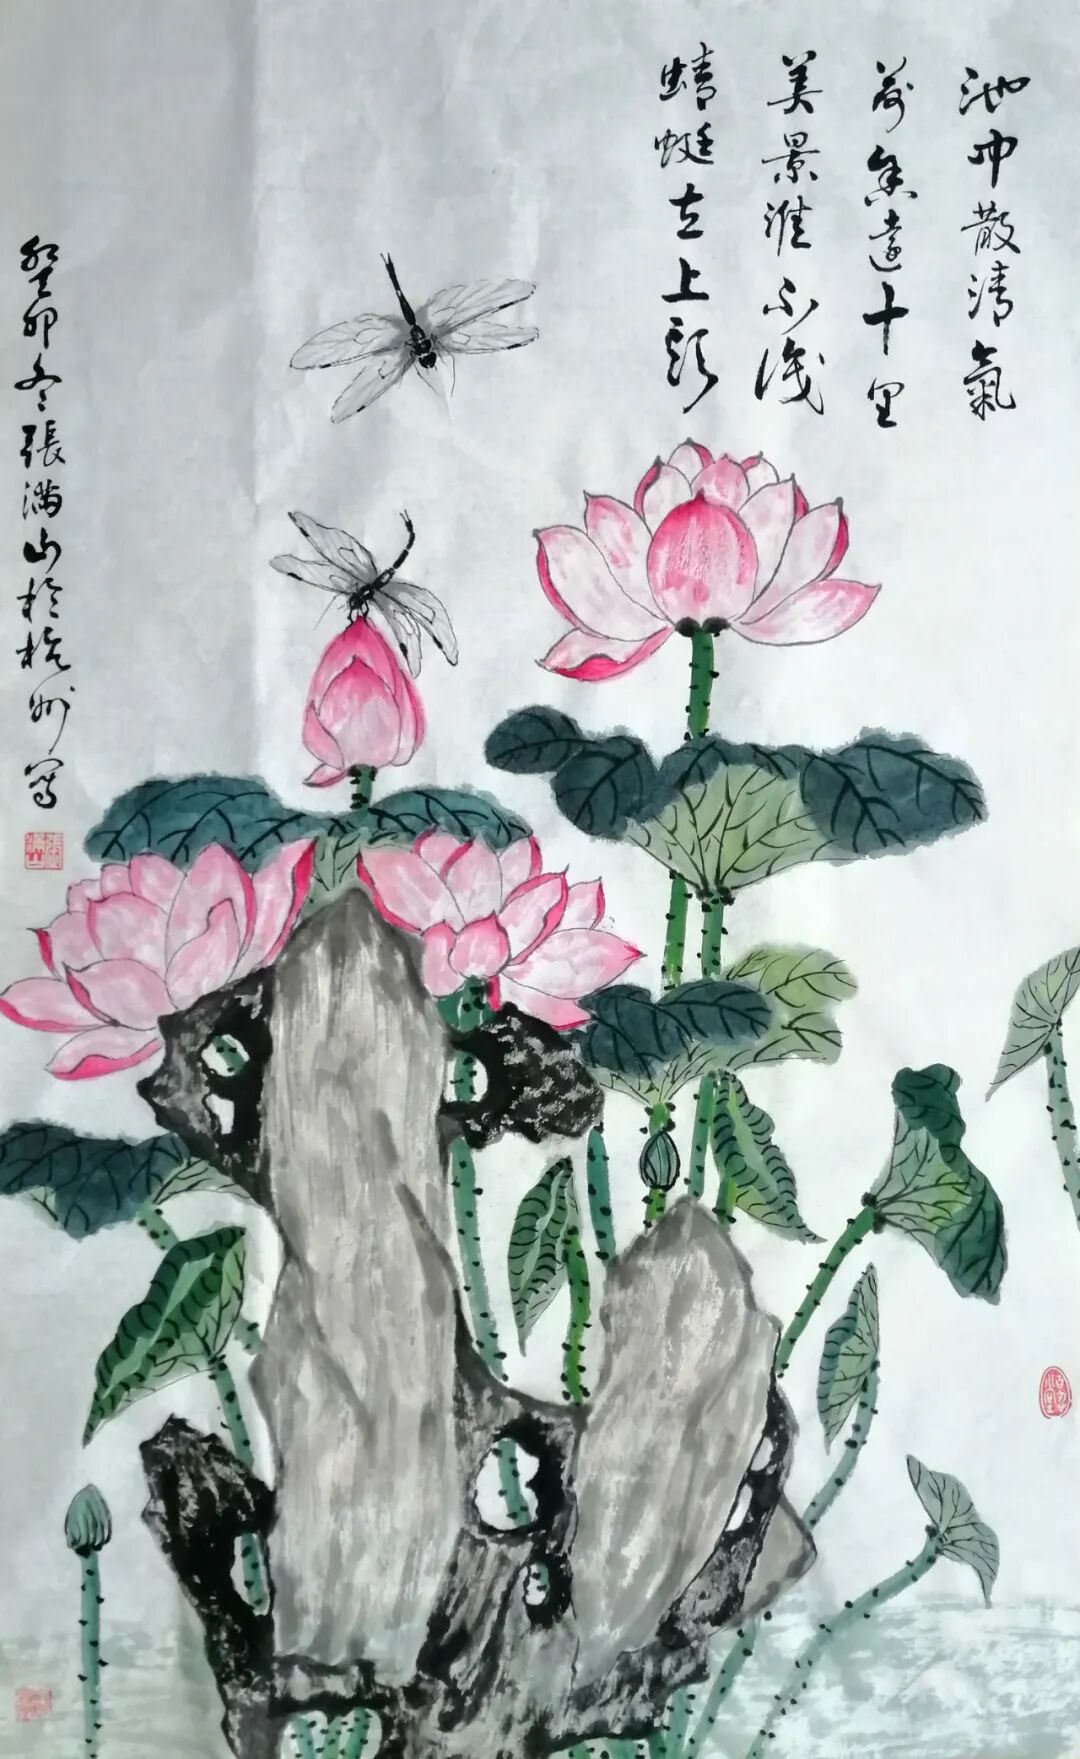 池中散清氣
荷香遠十里
美景誰不識
蜻蜓立上頭
癸卯冬張滿山於杭州寫